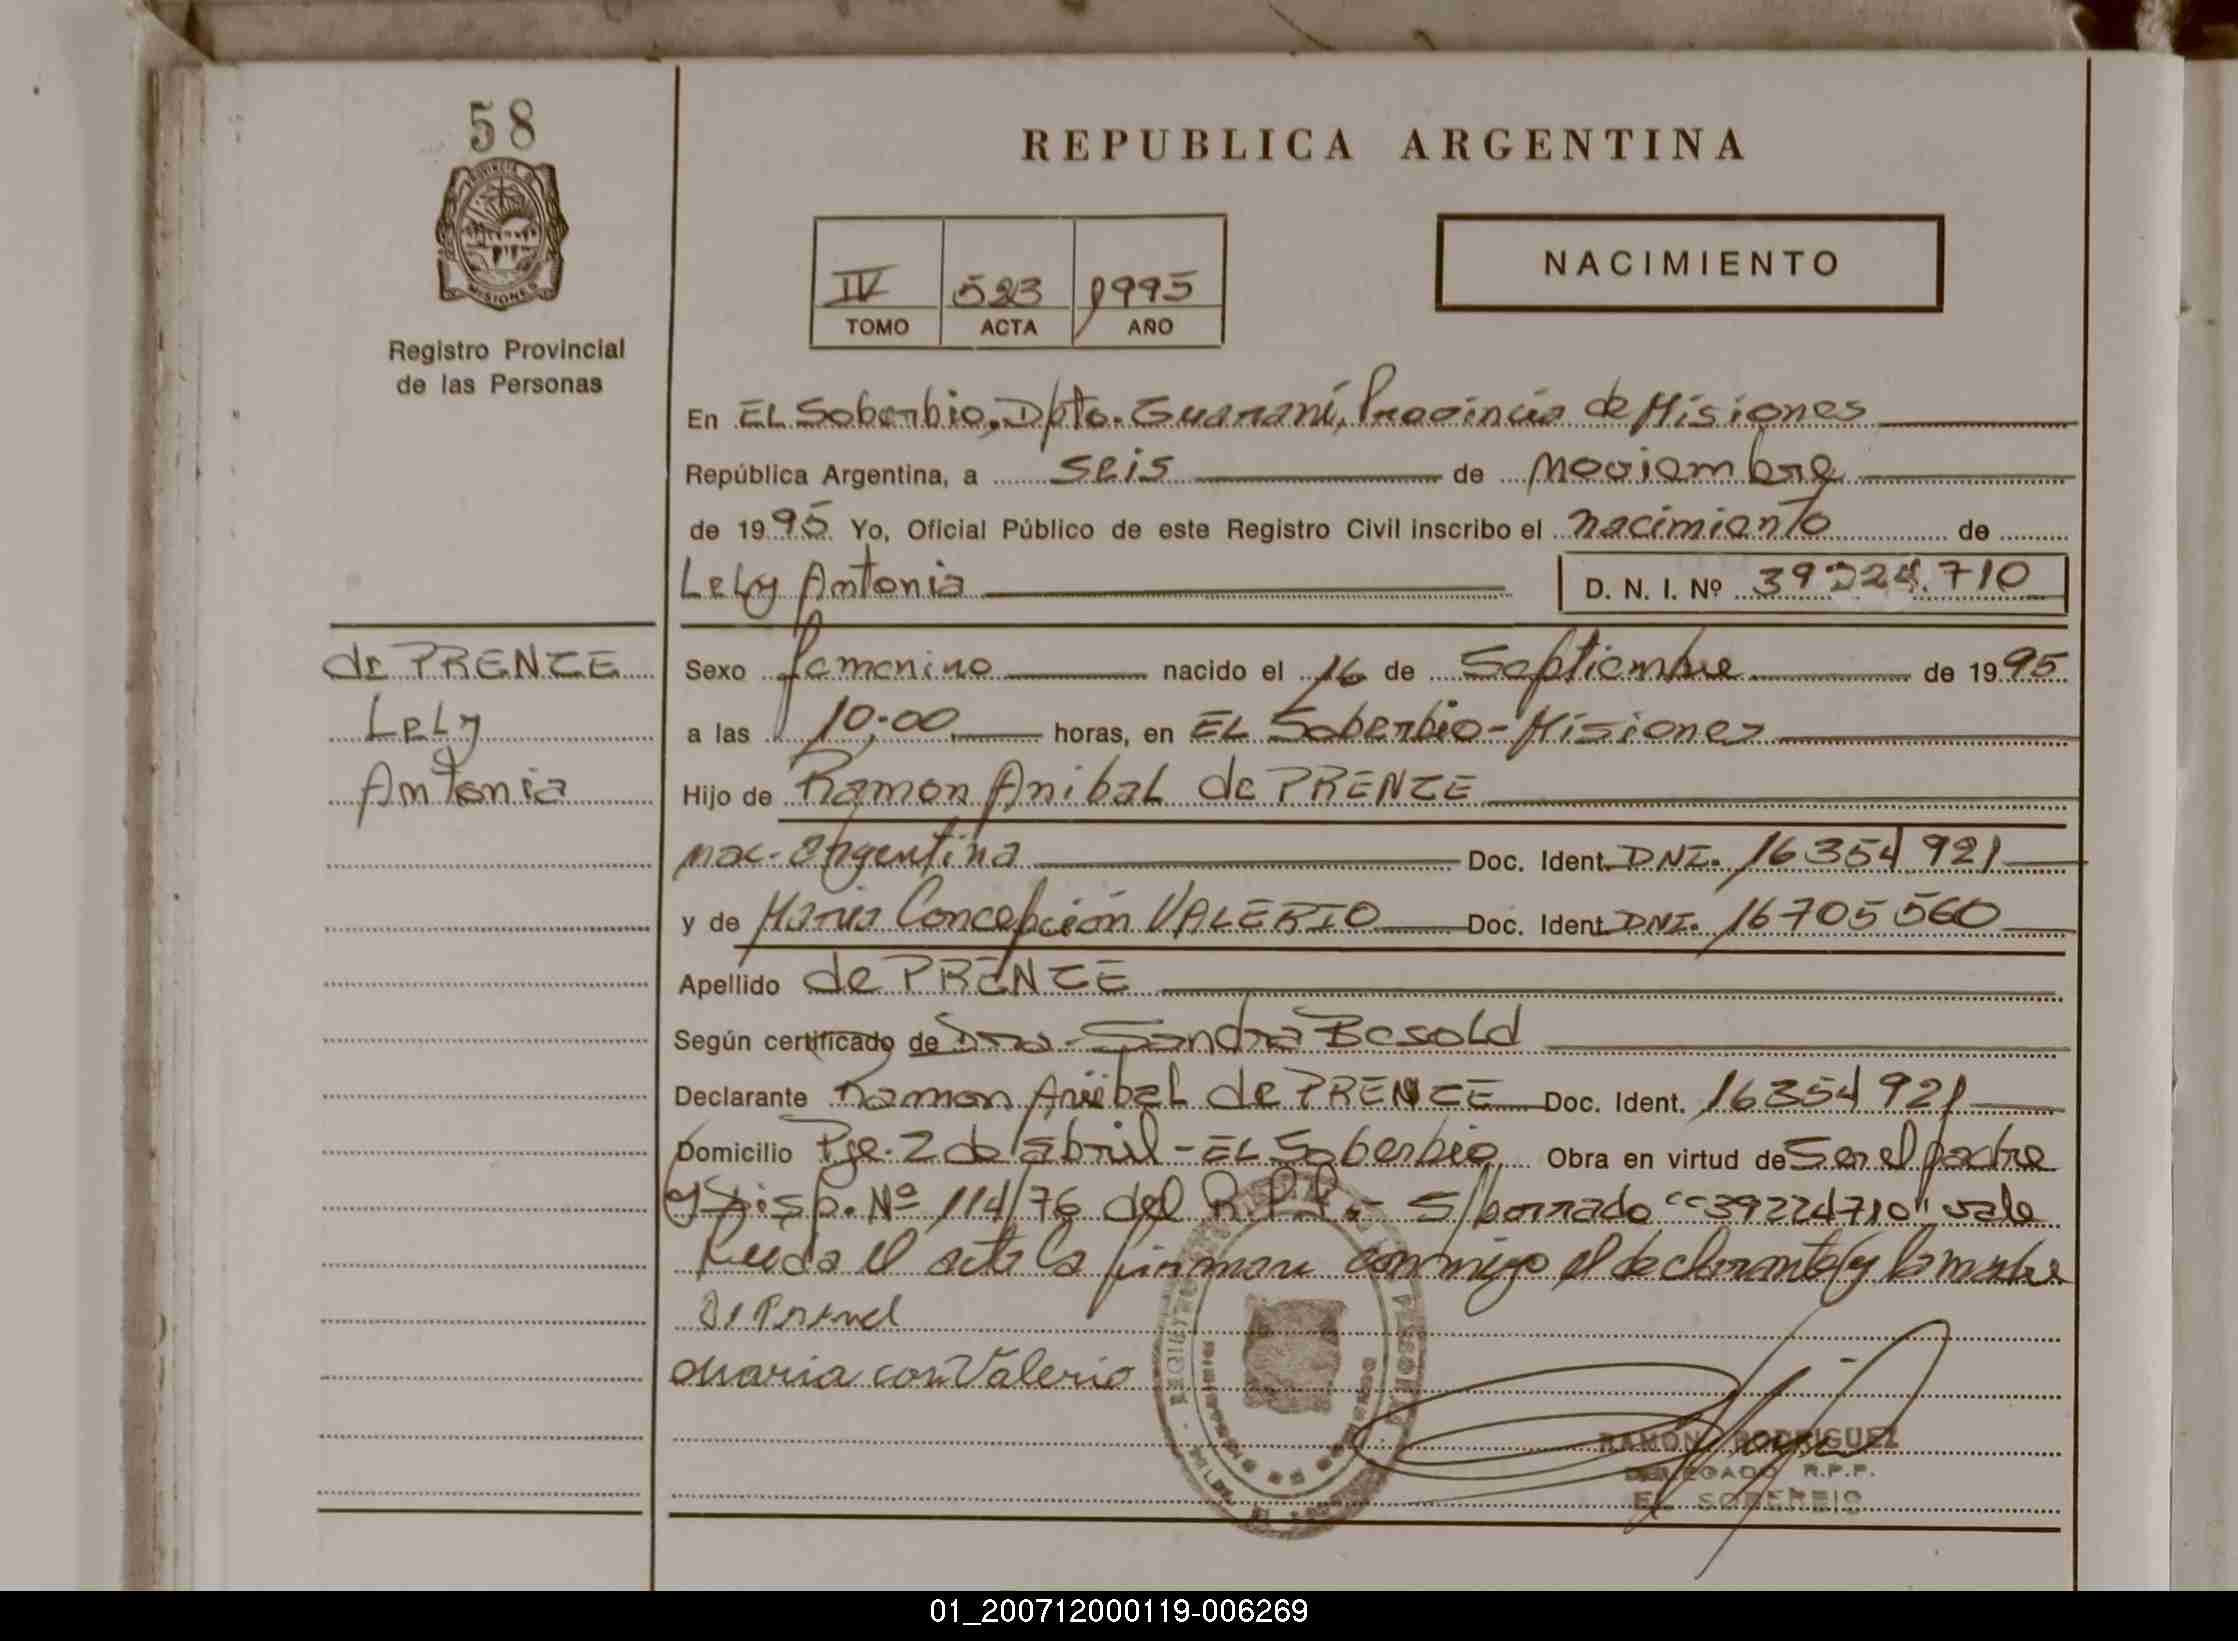 58
REPUBLICA ARGENTINA
PROVINCIA DE
MISIONES
Registro Provincial
de las Personas
IV 523 1995
TOMO ACTA AÑO
NACIMIENTO
En EL Soberbio, Dpto. Guaraní, Provincia de Misiones
República Argentina, a seis de noviembre
de 1995 Yo, Oficial Público de este Registro Civil inscribo el nacimiento de
Lely Antonia D. N. I. Nº 39224.710
de PRENCE
Lely
Antonia
Sexo femenino nacido el 16 de Septiembre de 1995
a las 10:00 horas, en EL Soberbio - Misiones
Hijo de Ramon Anibal de PRENCE
nac. argentina Doc. Ident. DNI. 16354921
y de Maria Concepción VALERIO Doc. Ident. DNI. 16705560
Apellido de PRENCE
Según certificado de Dra. Sandra Besold
Declarante Ramon Anibal de PRENCE Doc. Ident. 16354921
Domicilio Pje. 2 de abril - EL Soberbio Obra en virtud de Ser el padre
y Disp. Nº 114/76 del R.P.P. - S/borrado "39224710" vale
Leida el acta la firman conmigo el declarante y la madre
Maria con Valerio
RAMON RODRIGUEZ
DELEGADO R.P.P.
EL SOBERBIO
01_200712000119-006269